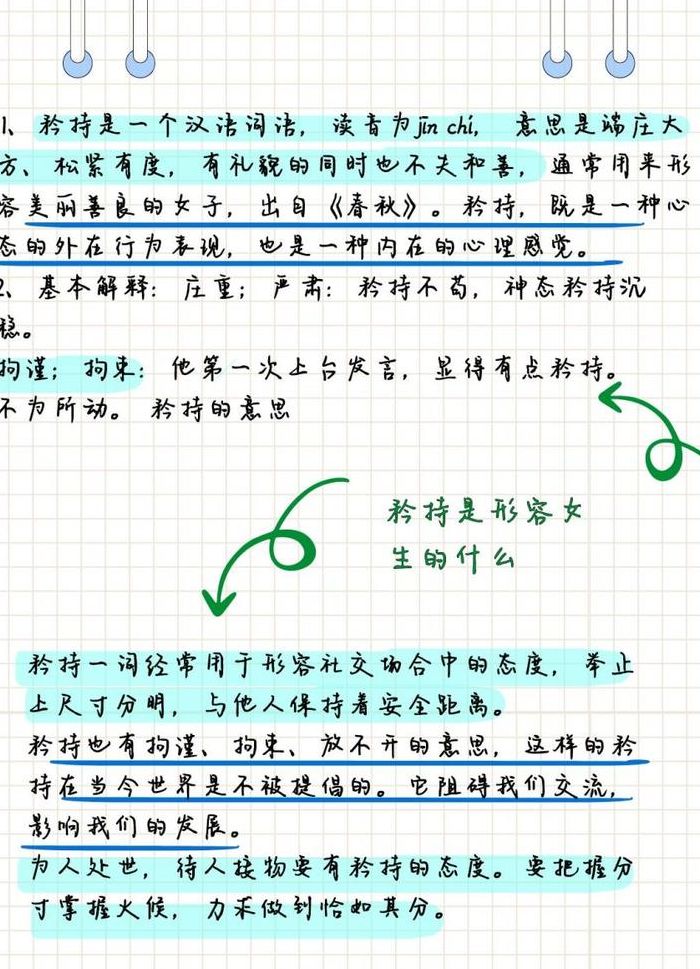 1、矜持是一个汉语词语，读音为jin chi，意思是端庄大
方、松紧有度，有礼貌的同时也不失和善，通常用来形
容美丽善良的女子，出自《春秋》。矜持，既是一种心
态的外在行为表现，也是一种内在的心理感觉。
2、基本解释：庄重；严肃：矜持不苟，神态矜持沉
稳。
拘谨；拘束：他第一次上台发言，显得有点矜持。
不为所动。 矜持的意思
矜持是形容女
生的什么
矜持一词经常用于形容社交场合中的态度，举止
上尺寸分明，与他人保持着安全距离。
矜持也有拘谨、拘束、放不开的意思，这样的矜
持在当今世界是不被提倡的。它阻碍我们交流，
影响我们的发展。
为人处世，待人接物要有矜持的态度。要把握分
寸掌握火候，力求做到恰如其分。